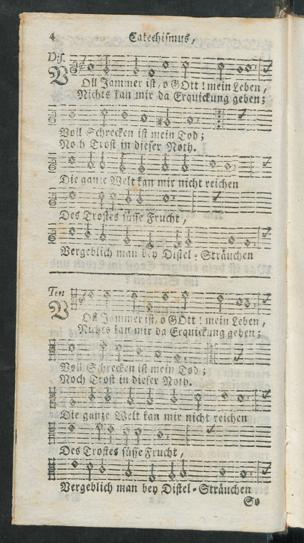 4 Catechismus,
Dis.
VOll Jammer ist, o GOtt! mein Leben,
Nichts kan mir da Erquickung geben;
Voll Schrecken ist mein Tod;
Noch Trost in dieser Noth.
Die gantze Welt kan mir nicht reichen
Des Trostes süsse Frucht,
Vergeblich man bey Distel-Sträuchen
Ten
VOll Jammer ist, o GOtt! mein Leben,
Nichts kan mir da Erquickung geben;
Voll Schrecken ist mein Tod;
Noch Trost in dieser Noth.
Die gantze Welt kan mir nicht reichen
Des Trostes süsse Frucht,
Vergeblich man bey Distel-Sträuchen
So